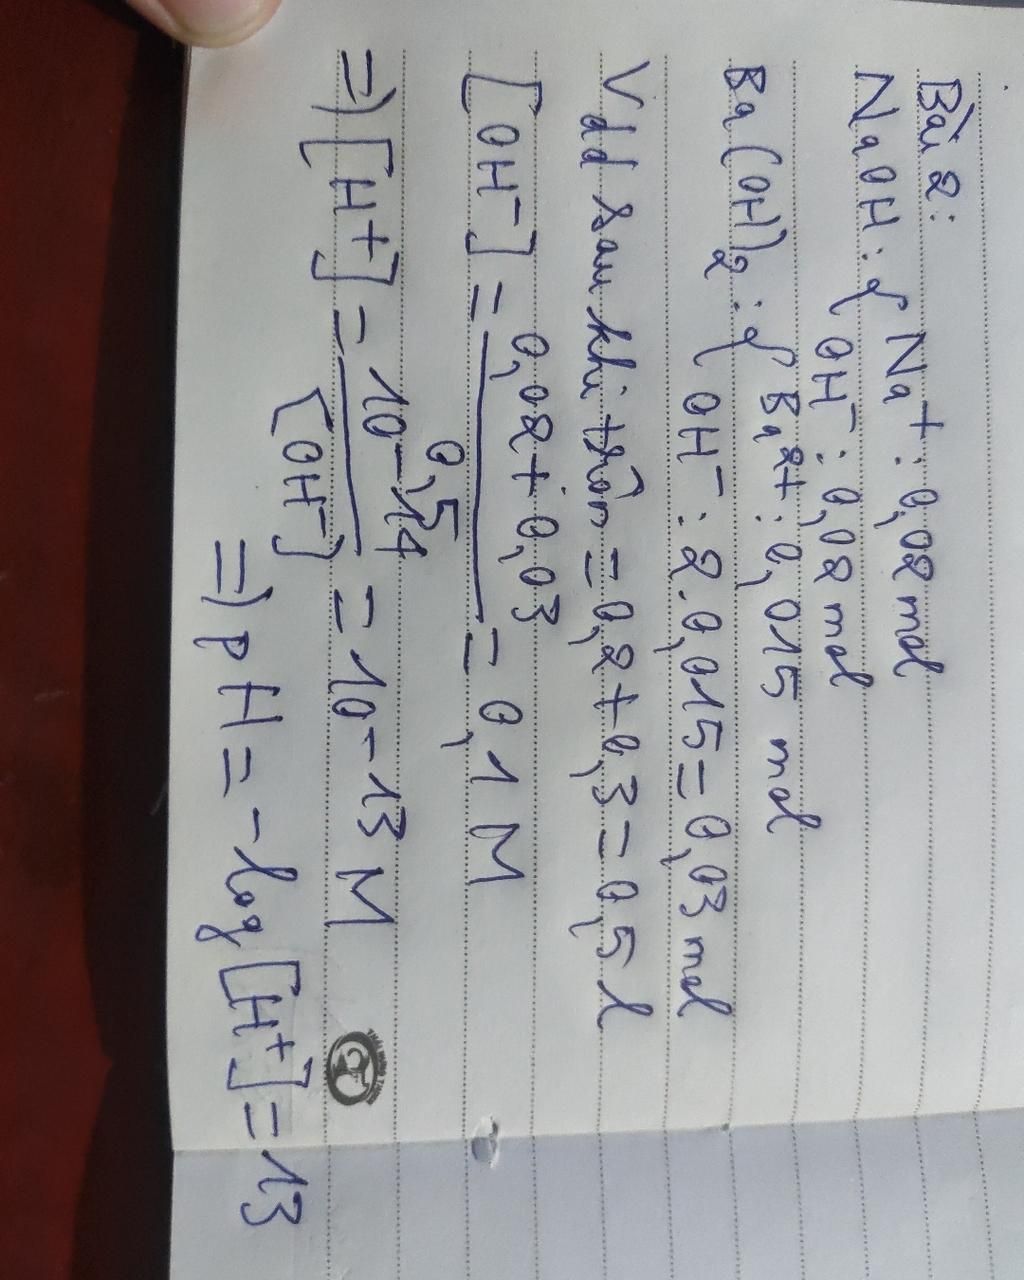 Bài 2:
NaOH: { Na⁺: 0,02 mol
OH⁻: 0,02 mol
Ba(OH)₂: { Ba²⁺: 0,015 mol
OH⁻: 2.0,015 = 0,03 mol
Vdd sau khi trộn = 0,2 + 0,3 = 0,5 l
[OH⁻] = (0,02 + 0,03) / 0,5 = 0,1 M
=> [H⁺] = 10⁻¹⁴ / [OH⁻] = 10⁻¹³ M
=> pH = -log[H⁺] = 13